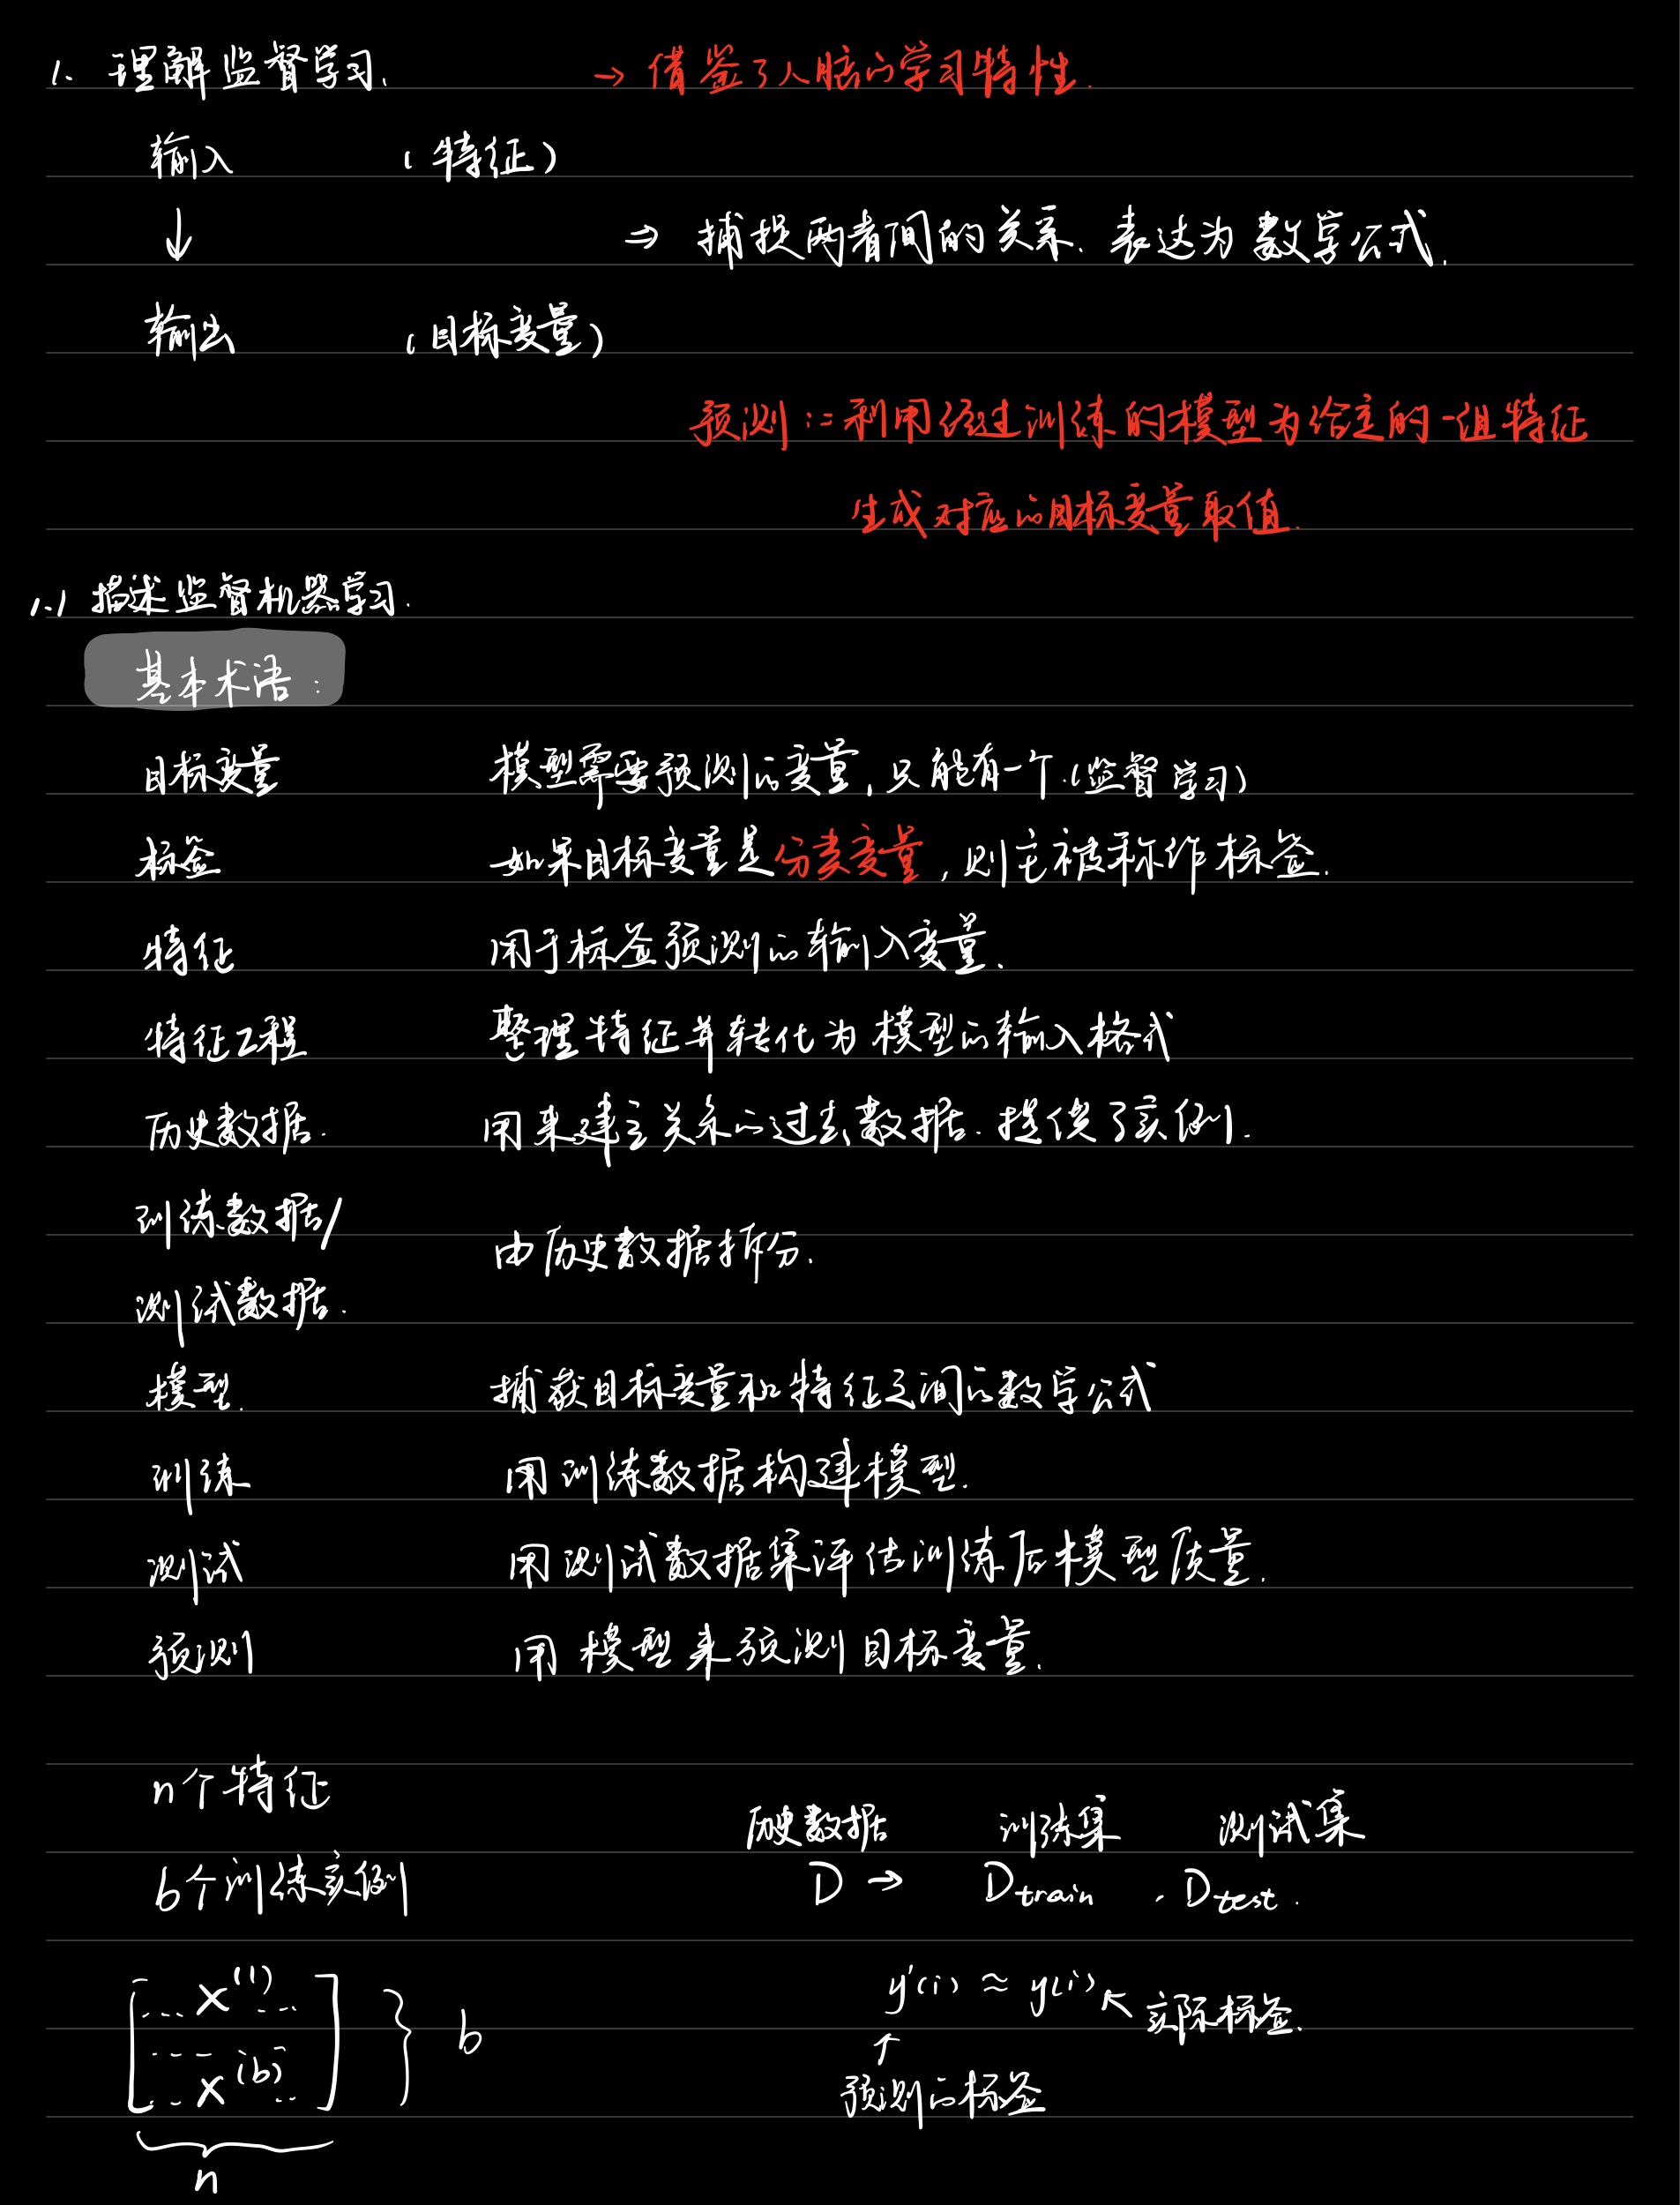 1. 理解监督学习. → 借鉴了人脑的学习特性.
输入 (特征)
↓ ⇒ 捕捉两者间的关系. 表达为数学公式.
输出 (目标变量)
预测 := 利用经过训练的模型为给定的一组特征
生成对应的目标变量取值.
1.1 描述监督机器学习.
基本术语:
目标变量 模型需要预测的变量, 只能有一个.(监督学习)
标签 如果目标变量是分类变量, 则它被称作标签.
特征 用于标签预测的输入变量.
特征工程 整理特征并转化为模型的输入格式
历史数据. 用来建立关系的过去数据. 提供了实例.
训练数据/
由历史数据拆分.
测试数据.
模型. 捕获目标变量和特征之间的数学公式
训练 用训练数据构建模型.
测试 用测试数据集评估训练后模型质量.
预测 用模型来预测目标变量.
n个特征
历史数据 训练集 测试集
b个训练实例 D → Dtrain . Dtest.
x(1)
y'(i) ≈ y(i) ↖ 实际标签.
b
↑
x(b)
预测的标签
n